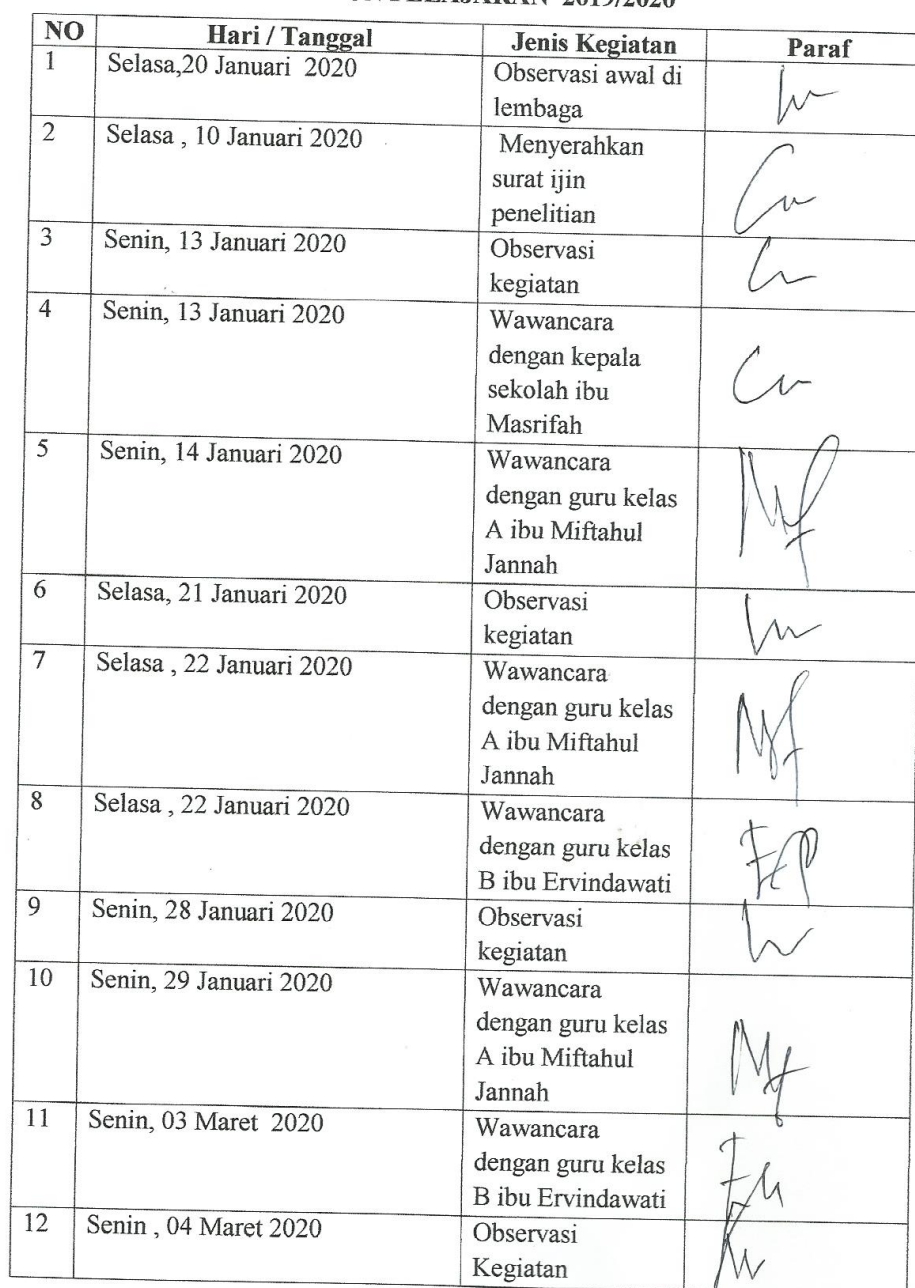 PELAJARAN 2019/2020
NO Hari / Tanggal Jenis Kegiatan Paraf
1 Selasa,20 Januari 2020 Observasi awal di
lembaga
2 Selasa , 10 Januari 2020 Menyerahkan
surat ijin
penelitian
3 Senin, 13 Januari 2020 Observasi
kegiatan
4 Senin, 13 Januari 2020 Wawancara
dengan kepala
sekolah ibu
Masrifah
5 Senin, 14 Januari 2020 Wawancara
dengan guru kelas
A ibu Miftahul
Jannah
6 Selasa, 21 Januari 2020 Observasi
kegiatan
7 Selasa , 22 Januari 2020 Wawancara
dengan guru kelas
A ibu Miftahul
Jannah
8 Selasa , 22 Januari 2020 Wawancara
dengan guru kelas
B ibu Ervindawati
9 Senin, 28 Januari 2020 Observasi
kegiatan
10 Senin, 29 Januari 2020 Wawancara
dengan guru kelas
A ibu Miftahul
Jannah
11 Senin, 03 Maret 2020 Wawancara
dengan guru kelas
B ibu Ervindawati
12 Senin , 04 Maret 2020 Observasi
Kegiatan